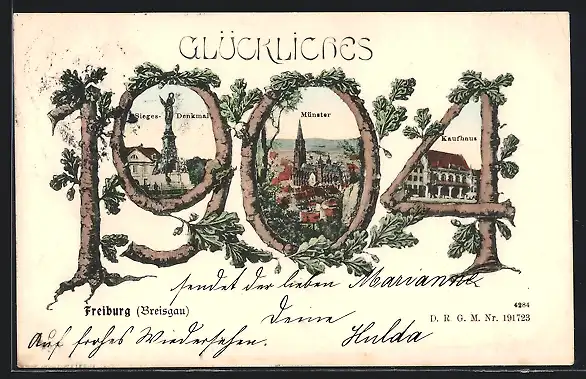 GLÜCKLICHES
1904
Sieges-Denkmal
Münster
Kaufhaus
sendet der lieben Marianne
Freiburg (Breisgau)
4284
Deine
D. R. G. M. Nr. 191723
Auf frohes Wiedersehen. Hulda